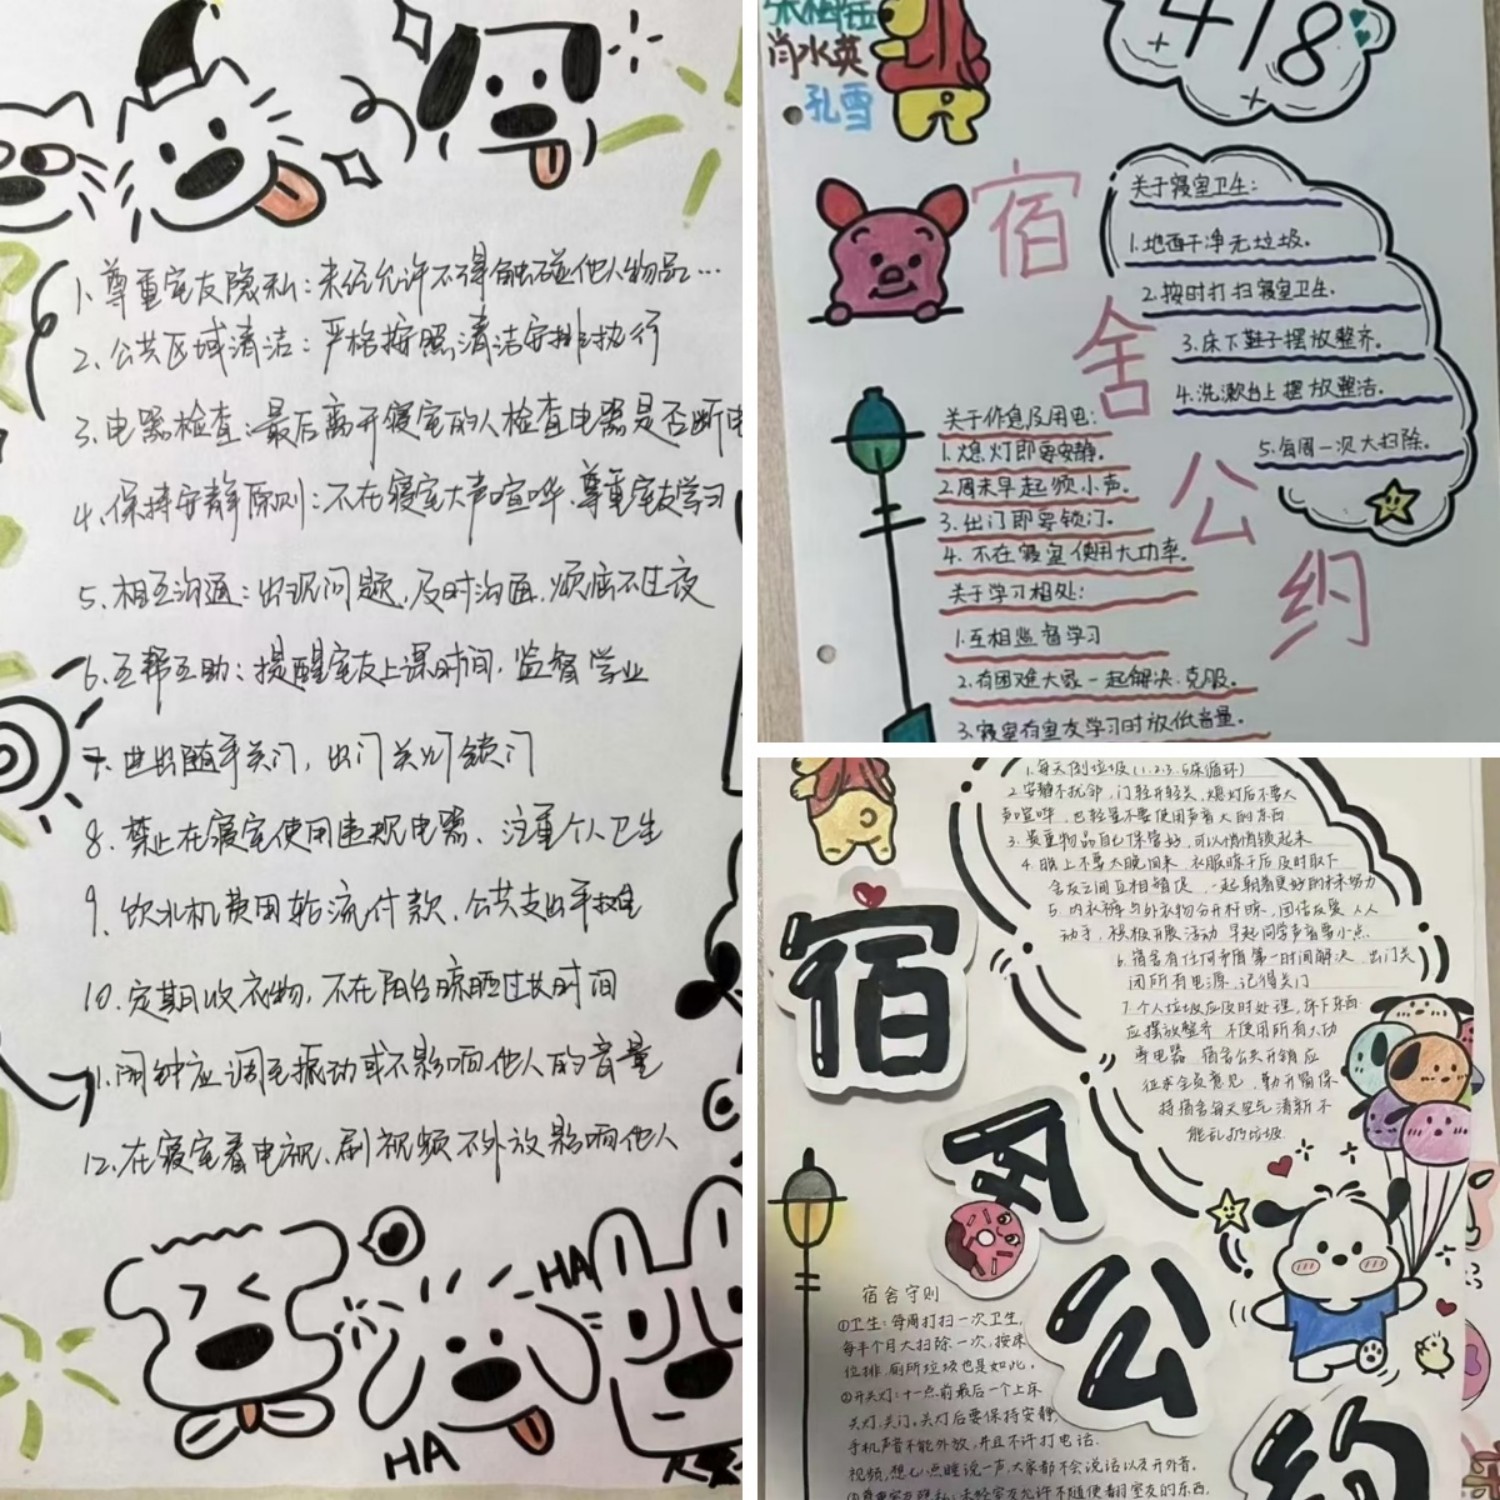 1、尊重室友隐私：未经允许不得触碰他人物品…
2、公共区域清洁：严格按照清洁安排执行
3、电器检查：最后离开寝室的人检查电器是否断电
4、保持安静原则：不在寝室大声喧哗、尊重室友学习
5、相互沟通：出现问题，及时沟通，烦恼不过夜
6、互帮互助：提醒室友上课时间，监督学业
7、进出随手关门，出门关灯锁门
8、禁止在寝室使用违规电器、注重个人卫生
9、饮水机费用轮流付款，公共支出平摊
10、定期收衣物，不在阳台晾晒过长时间
11、闹钟应调至振动或不影响他人的音量
12、在寝室看电视、刷视频不外放影响他人
HA
HA
肖水英
孔雪
418
宿舍公约
关于寝室卫生：
1.地面干净无垃圾。
2.按时打扫寝室卫生。
3.床下鞋子摆放整齐。
4.洗漱台上摆放整洁。
5.每周一次大扫除。
关于作息及用电：
1.熄灯即要安静。
2.周末早起须小声。
3.出门即要锁门。
4.不在寝室使用大功率。
关于学习相处：
1.互相监督学习
2.有困难大家一起解决、克服。
3.寝室有室友学习时放低音量。
1.每天倒垃圾(1.2.3.5床循环)
2.安静不扰邻，门轻开轻关，熄灯后不要大
声喧哗，也轻量不要使用声音大的东西
3.贵重物品自己保管好，可以悄悄锁起来
4.晚上不要太晚回来，衣服晾干后及时取下
舍友之间互相督促，一起朝着更好的未来努力
5.内衣裤与外衣物分开杆晾，团结友爱，人人
动手，积极开展活动 早起同学声音要小点
6.宿舍有任何矛盾第一时间解决，出门关
闭所有电源，记得关门
7.个人垃圾应及时处理，床下东西
应摆放整齐 不使用所有大功
率电器 宿舍公共开销应
征求全员意见，勤开窗保
持宿舍每天空气清新 不
能乱扔垃圾
宿舍公约
宿舍守则
①卫生：每周打扫一次卫生，
每半个月大扫除一次，按床
位排，厕所垃圾也是如此。
②开关灯：十一点前最后一个上床
关灯、关门。关灯后要保持安静，
手机声音不能外放，并且不许打电话.
视频，想七八点睡说一声，大家都不会说话以及开外音。
未经室友允许不随便翻室友的东西.